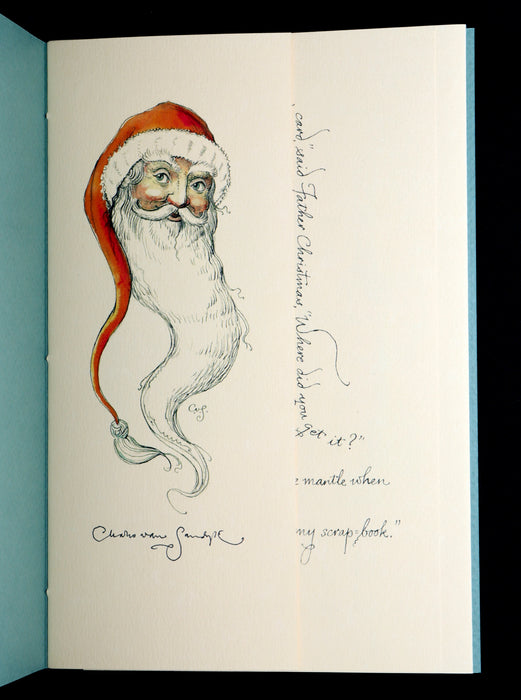 CvS
Charles van Sandwyk
card," said Father Christmas, "Where did you get it?"
mantle when
my scrap-book."